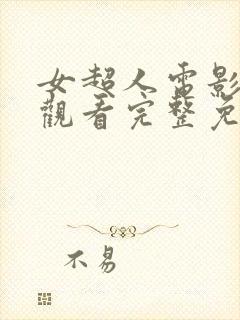 女超人電影
觀看完整免
不易